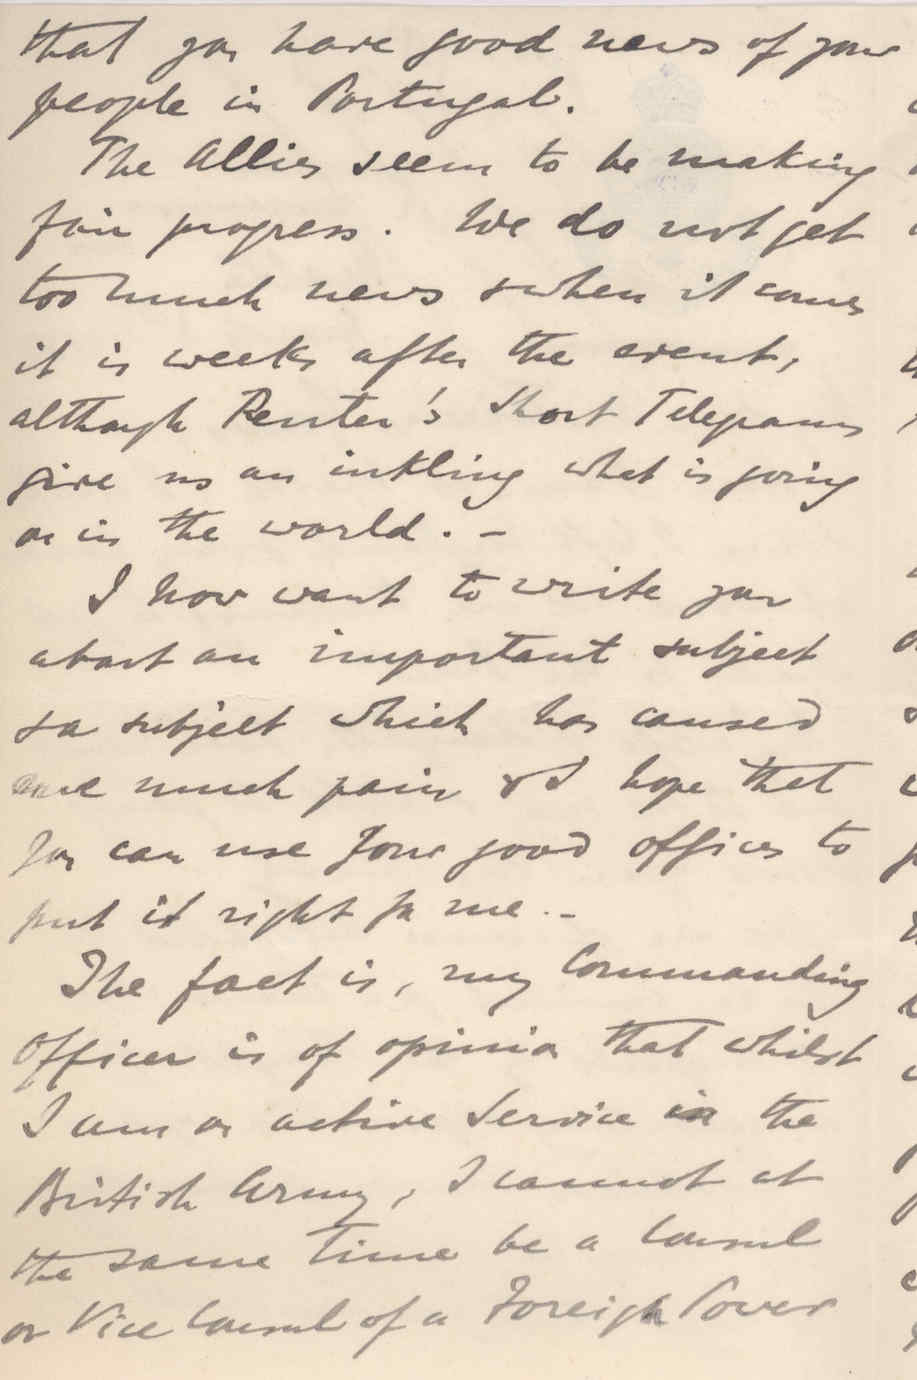 that you have good news of your
people in Portugal.
The Allies seem to be making
fair progress. We do not get
too much news & when it comes
it is weeks after the event,
although Reuter's Short Telegrams
give us an inkling what is going
on in the world. -
I now want to write you
about an important subject
& a subject which has caused
me much pain & I hope that
you can use your good offices to
put it right for me. -
The fact is, my Commanding
Officer is of opinion that whilst
I am on active Service in the
British Army, I cannot at
the same time be a Consul
or Vice Consul of a Foreign Power